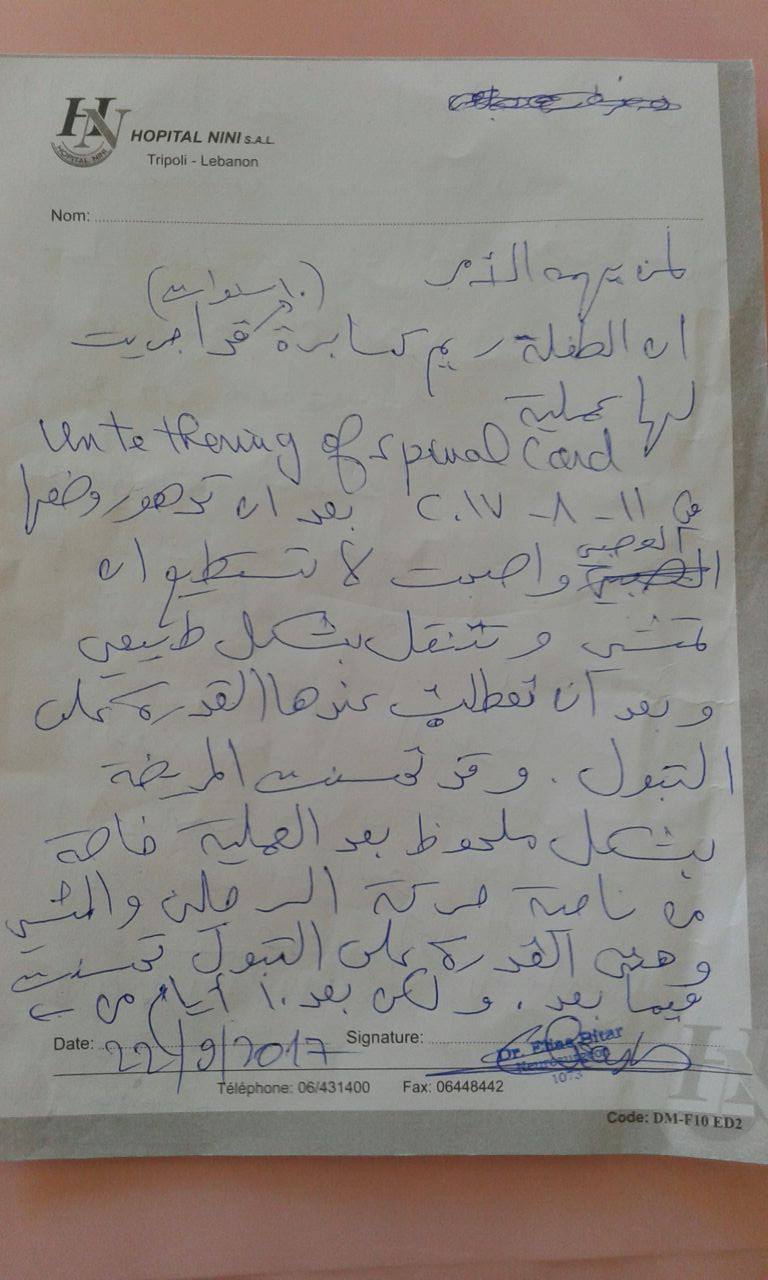 HN
HOPITAL NINI
HOPITAL NINI S.A.L.
Tripoli - Lebanon
Nom:
لمن يهمه الأمر
(١٠ سنوات)
ان الطفلة ريم كبابرة قد اجريت
لها عملية
Untethering of spinal Cord
في ١١ - ٨ - ٢٠١٧ بعد ان تدهور وضعها
العصبي واصبحت لا تستطيع ان
تمشي و تتنقل بشكل طبيعي
و بعد أن تعطلت عندها القدرة على
التبول . و قد تحسنت المريضة
بشكل ملحوظ بعد العملية خاصة
من ناحية حركة الرجلين والمشي
وحتى القدرة على التبول تحسنت
فيما بعد . و لكن بعد ١٠ أيام من
Date: 22/9/2017 Signature:
Dr. Elias Bitar
Neurosurgeon
1073
Téléphone: 06/431400 Fax: 06448442
Code: DM-F10 ED2